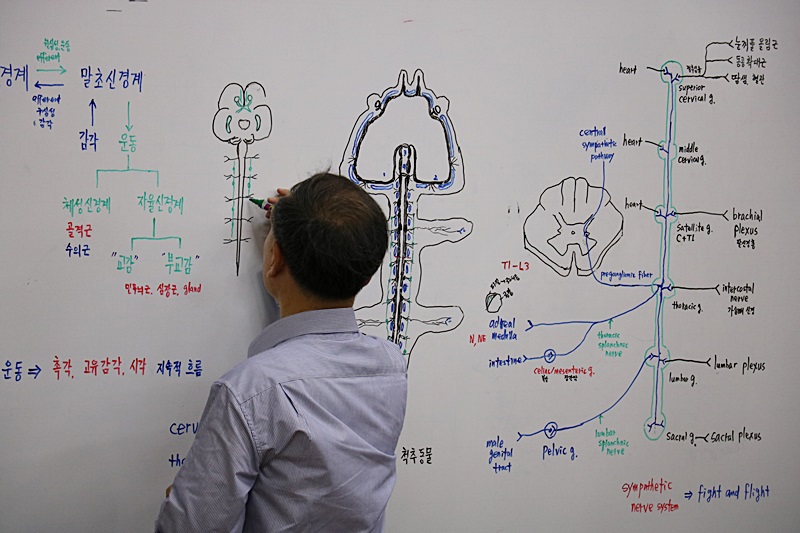 경계
말초신경계
감각
운동
체성신경계
자율신경계
골격근
수의근
"교감"
"부교감"
민무늬근, 심장근, gland
운동 ⇒ 촉각, 고유감각, 시각 지속적 흐름
척추동물
central
sympathetic
pathway
T1-L3
preganglionic fiber
adrenal
medulla
N, NE
intestine
celiac/mesenteric g.
thoracic
splanchnic
nerve
male
genital
tract
pelvic g.
lumbar
splanchnic
nerve
heart
superior
cervical g.
눈꺼풀 올림근
동공확대근
땀샘, 혈관
heart
middle
cervical g.
heart
satellite g.
C+T1
brachial
plexus
thoracic g.
intercostal
nerve
lumbar g.
lumbar plexus
sacral g.
sacral plexus
sympathetic
nerve system
⇒ fight and flight